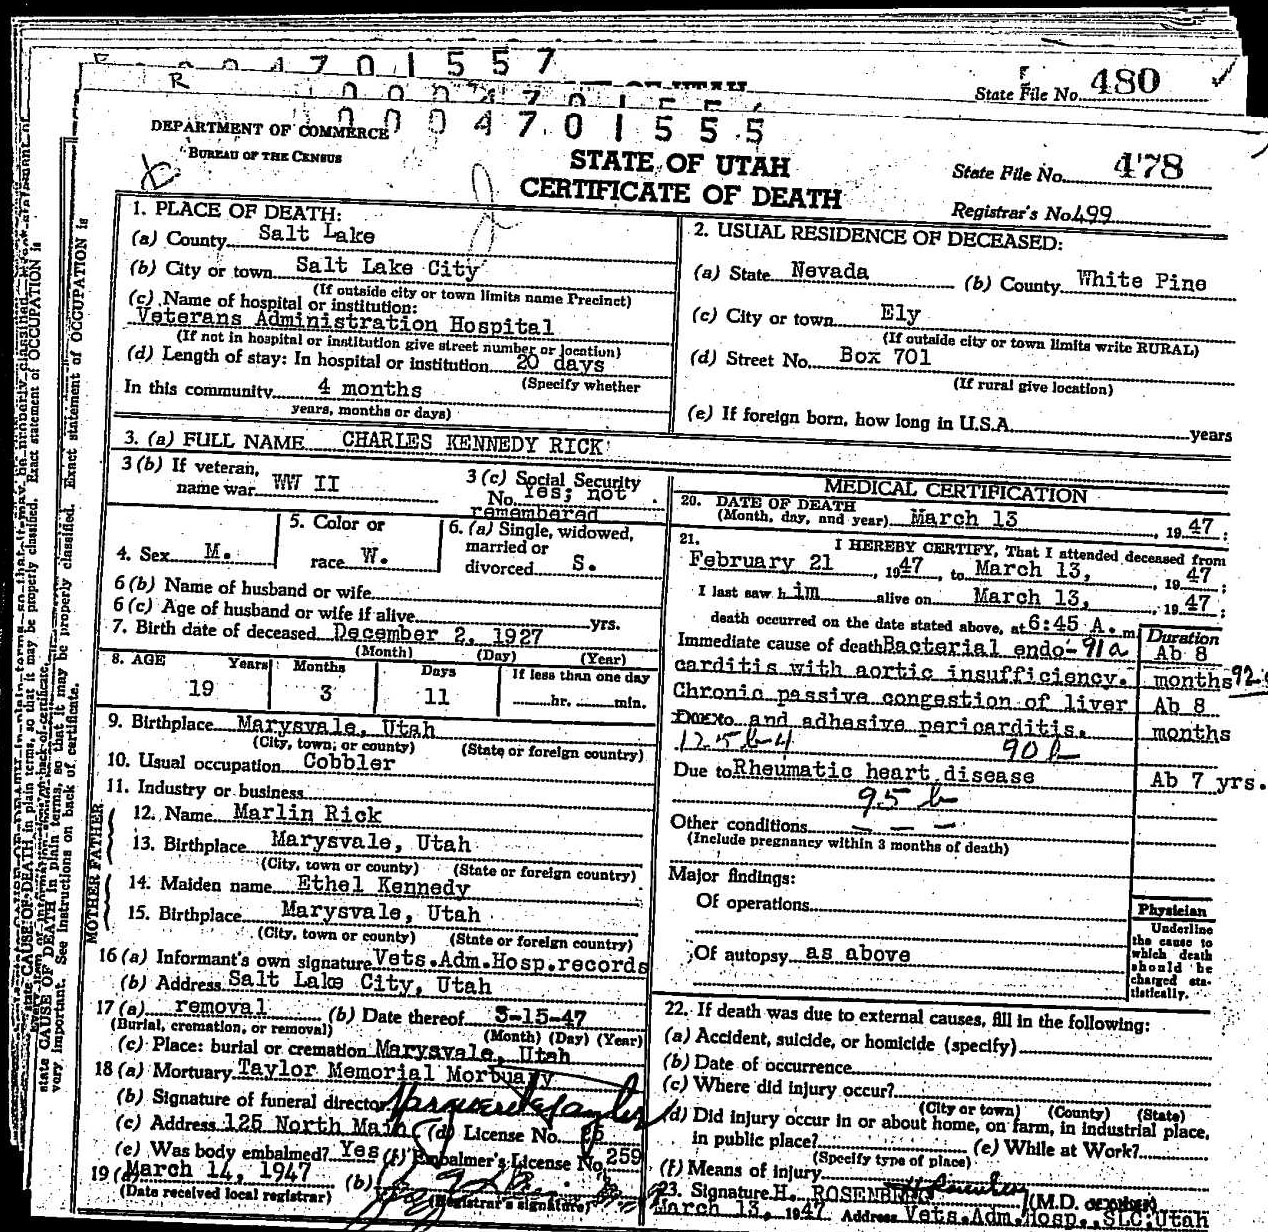 4701557
State File No. 480
R
0004701555
DEPARTMENT OF COMMERCE
BUREAU OF THE CENSUS
STATE OF UTAH
CERTIFICATE OF DEATH
State File No. 478
Registrar's No. 499
1. PLACE OF DEATH:
(a) County Salt Lake
(b) City or town Salt Lake City
(If outside city or town limits name Precinct)
(c) Name of hospital or institution:
Veterans Administration Hospital
(If not in hospital or institution give street number or location)
(d) Length of stay: In hospital or institution 20 days
(Specify whether
In this community 4 months
years, months or days)
2. USUAL RESIDENCE OF DECEASED:
(a) State Nevada (b) County White Pine
(c) City or town Ely
(If outside city or town limits write RURAL)
(d) Street No. Box 701
(If rural give location)
(e) If foreign born, how long in U.S.A. years
3. (a) FULL NAME CHARLES KENNEDY RICK
3 (b) If veteran,
name war WW II
3 (c) Social Security
No. Yes; not
remembered
4. Sex M.
5. Color or
race W.
6. (a) Single, widowed,
married or
divorced S.
6 (b) Name of husband or wife
6 (c) Age of husband or wife if alive yrs.
7. Birth date of deceased December 2, 1927
(Month) (Day) (Year)
8. AGE Years Months Days If less than one day
19 3 11 hr. min.
9. Birthplace Marysvale, Utah
(City, town, or county) (State or foreign country)
10. Usual occupation Cobbler
11. Industry or business
FATHER
12. Name Marlin Rick
13. Birthplace Marysvale, Utah
(City, town or county) (State or foreign country)
MOTHER
14. Maiden name Ethel Kennedy
15. Birthplace Marysvale, Utah
(City, town or county) (State or foreign country)
16 (a) Informant's own signature Vets.Adm.Hosp.records
(b) Address Salt Lake City, Utah
17 (a) removal (b) Date thereof 3-15-47
(Burial, cremation, or removal) (Month) (Day) (Year)
(c) Place: burial or cremation Marysvale, Utah
18 (a) Mortuary Taylor Memorial Mortuary
(b) Signature of funeral director
(c) Address 125 North Main (d) License No.
(e) Was body embalmed? Yes (f) Embalmer's License No. 259
19 (a) March 14, 1947 (b)
(Date received local registrar) (Registrar's signature)
MEDICAL CERTIFICATION
20. DATE OF DEATH
(Month, day, and year) March 13, 1947;
21. I HEREBY CERTIFY, That I attended deceased from
February 21, 1947, to March 13, 1947;
I last saw him alive on March 13, 1947;
death occurred on the date stated above, at 6:45 A. m.
Duration
Immediate cause of death Bacterial endo- 91a Ab 8
carditis with aortic insufficiency. months 92
Chronic passive congestion of liver Ab 8
Due to and adhesive pericarditis. months
125b-4 90b
Due to Rheumatic heart disease Ab 7 yrs.
95b
Other conditions - - -
(Include pregnancy within 3 months of death)
Major findings:
Of operations
Of autopsy as above
Physician
Underline
the cause to
which death
should be
charged sta-
tistically.
22. If death was due to external causes, fill in the following:
(a) Accident, suicide, or homicide (specify)
(b) Date of occurrence
(c) Where did injury occur?
(City or town) (County) (State)
(d) Did injury occur in or about home, on farm, in industrial place,
in public place? (e) While at Work?
(Specify type of place)
(f) Means of injury
23. Signature H. ROSENBERG (M.D. or other)
March 13, 1947 Address Vets.Adm.Hosp., SLC, Utah
state CAUSE OF DEATH in plain terms, so that it may be properly classified. Exact statement of OCCUPATION is
very important. See instructions on back of certificate.